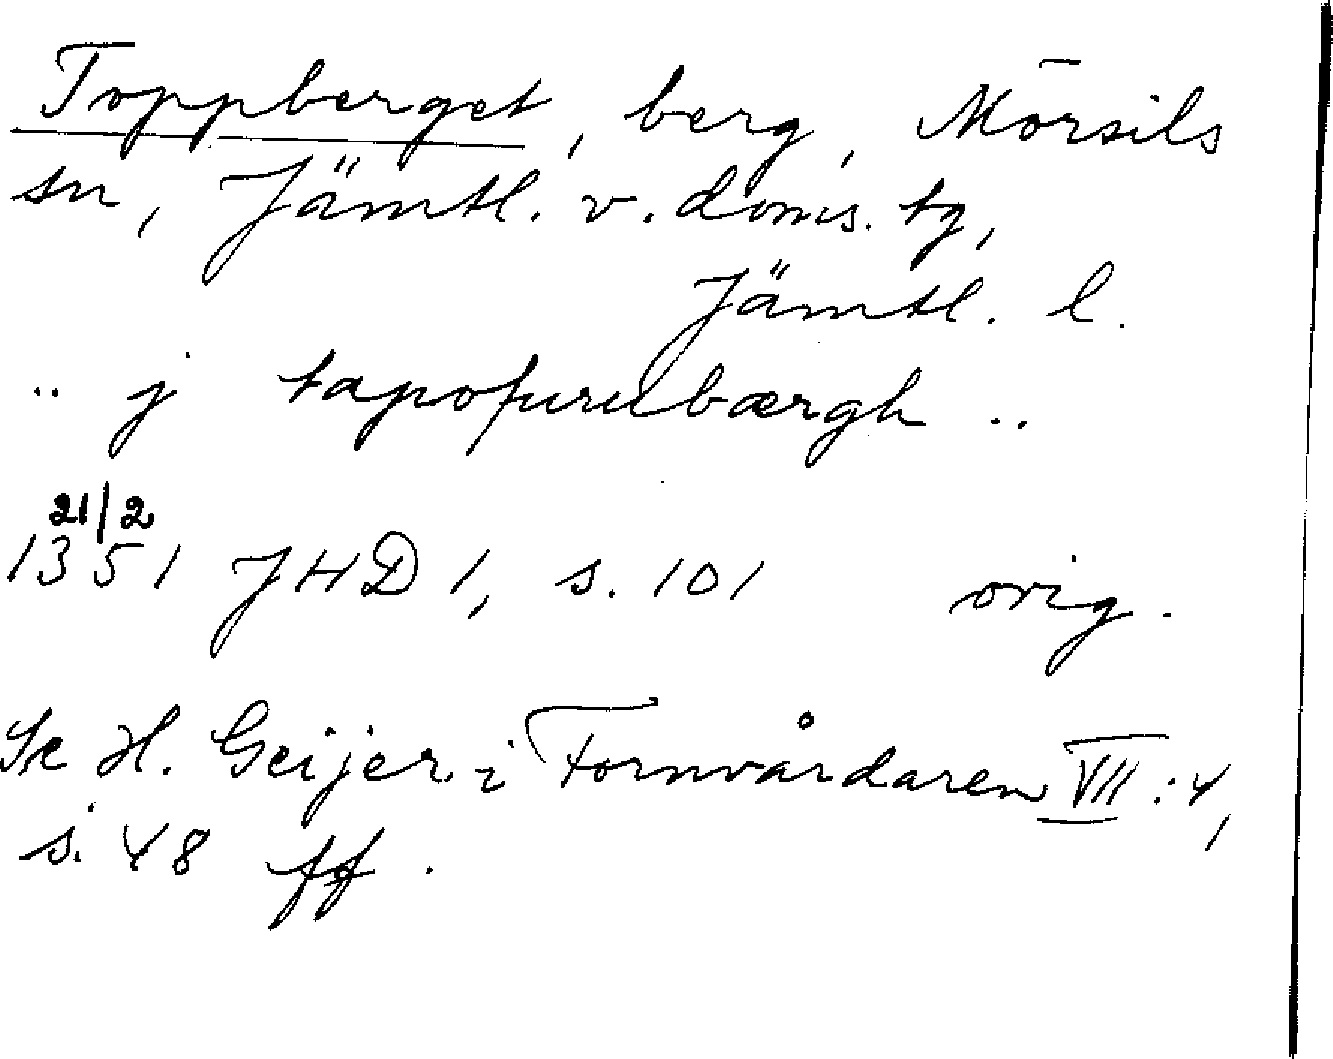 Toppberget, berg, Mörsils
sn, Jämtl. v. doms. tg,
Jämtl. l.
.. j tapofurulbærgh ..
21/2
1351 JHD 1, s. 101 orig.
Se H. Geijer i Fornvårdaren VII:4,
s. 48 ff.